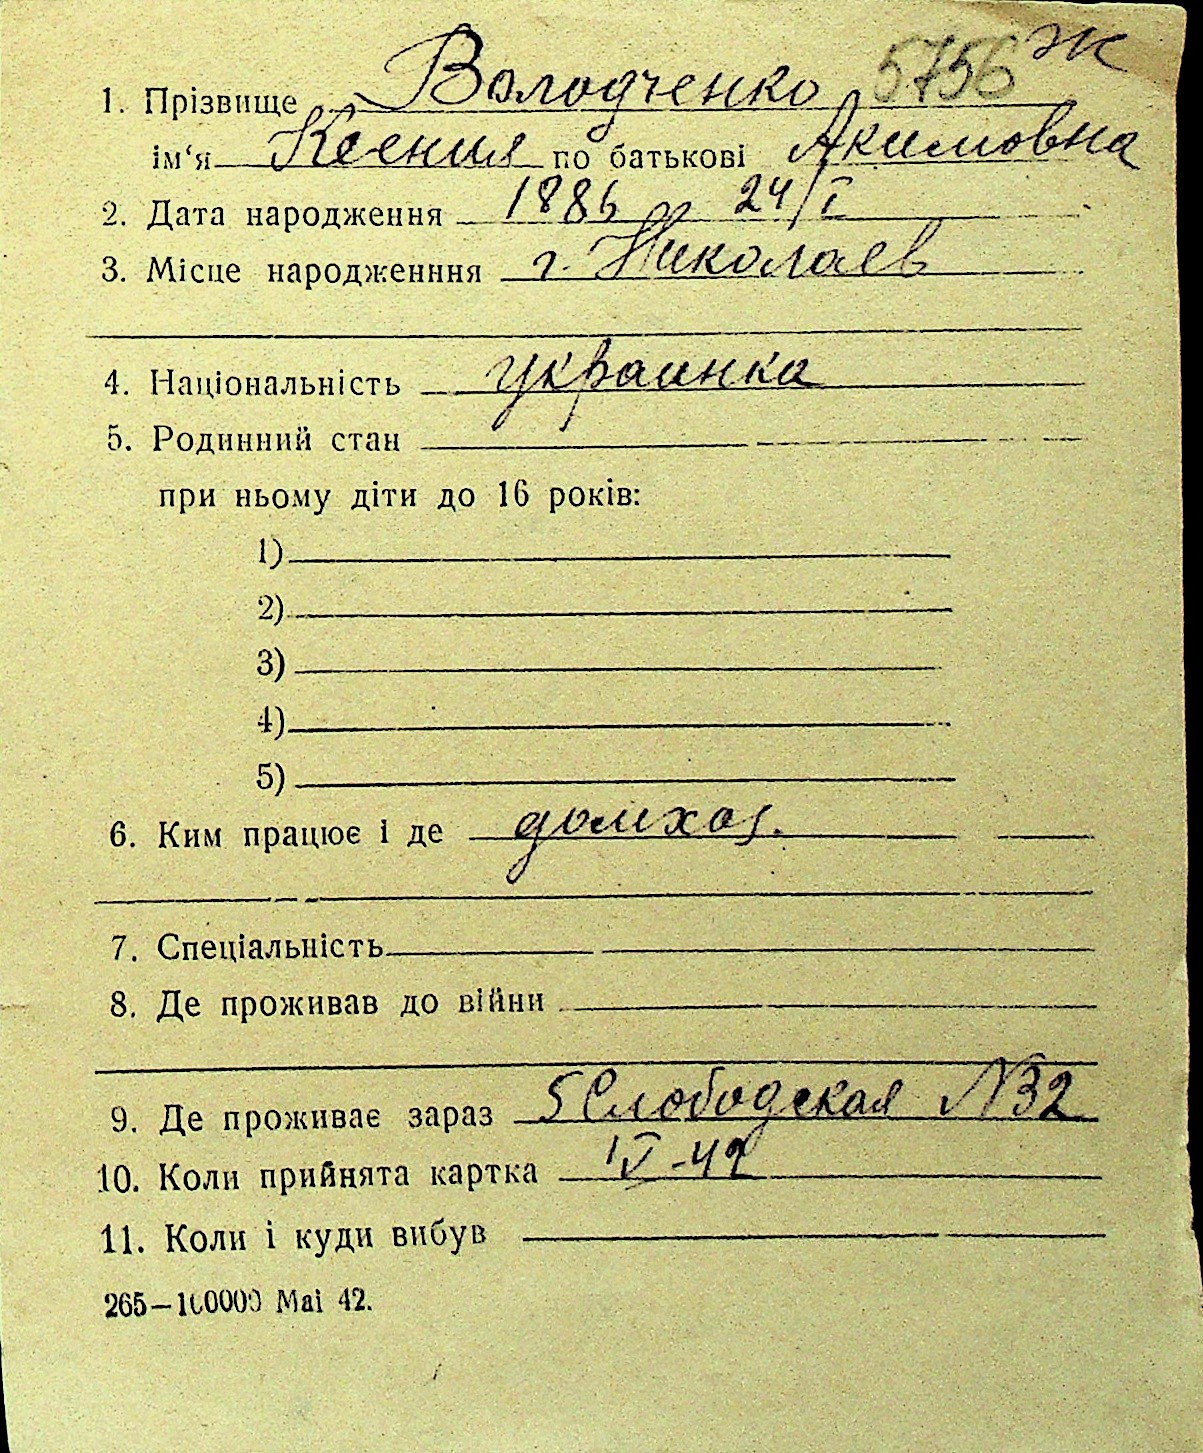 5756 Ж
1. Прізвище Володченко
ім‘я Ксения по батькові Акимовна
2. Дата народження 1886 24/I
3. Місце народженння г. Николаев
4. Національність украинка
5. Родинний стан
при ньому діти до 16 років:
1)
2)
3)
4)
5)
6. Ким працює і де домхоз.
7. Спеціальність
8. Де проживав до війни
9. Де проживає зараз 5 Слободская N32
10. Коли прийнята картка IV-42
11. Коли і куди вибув
265—100000 Маі 42.